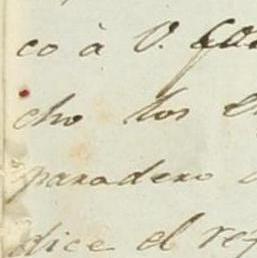 co à V.
cho los
paradero
dice el